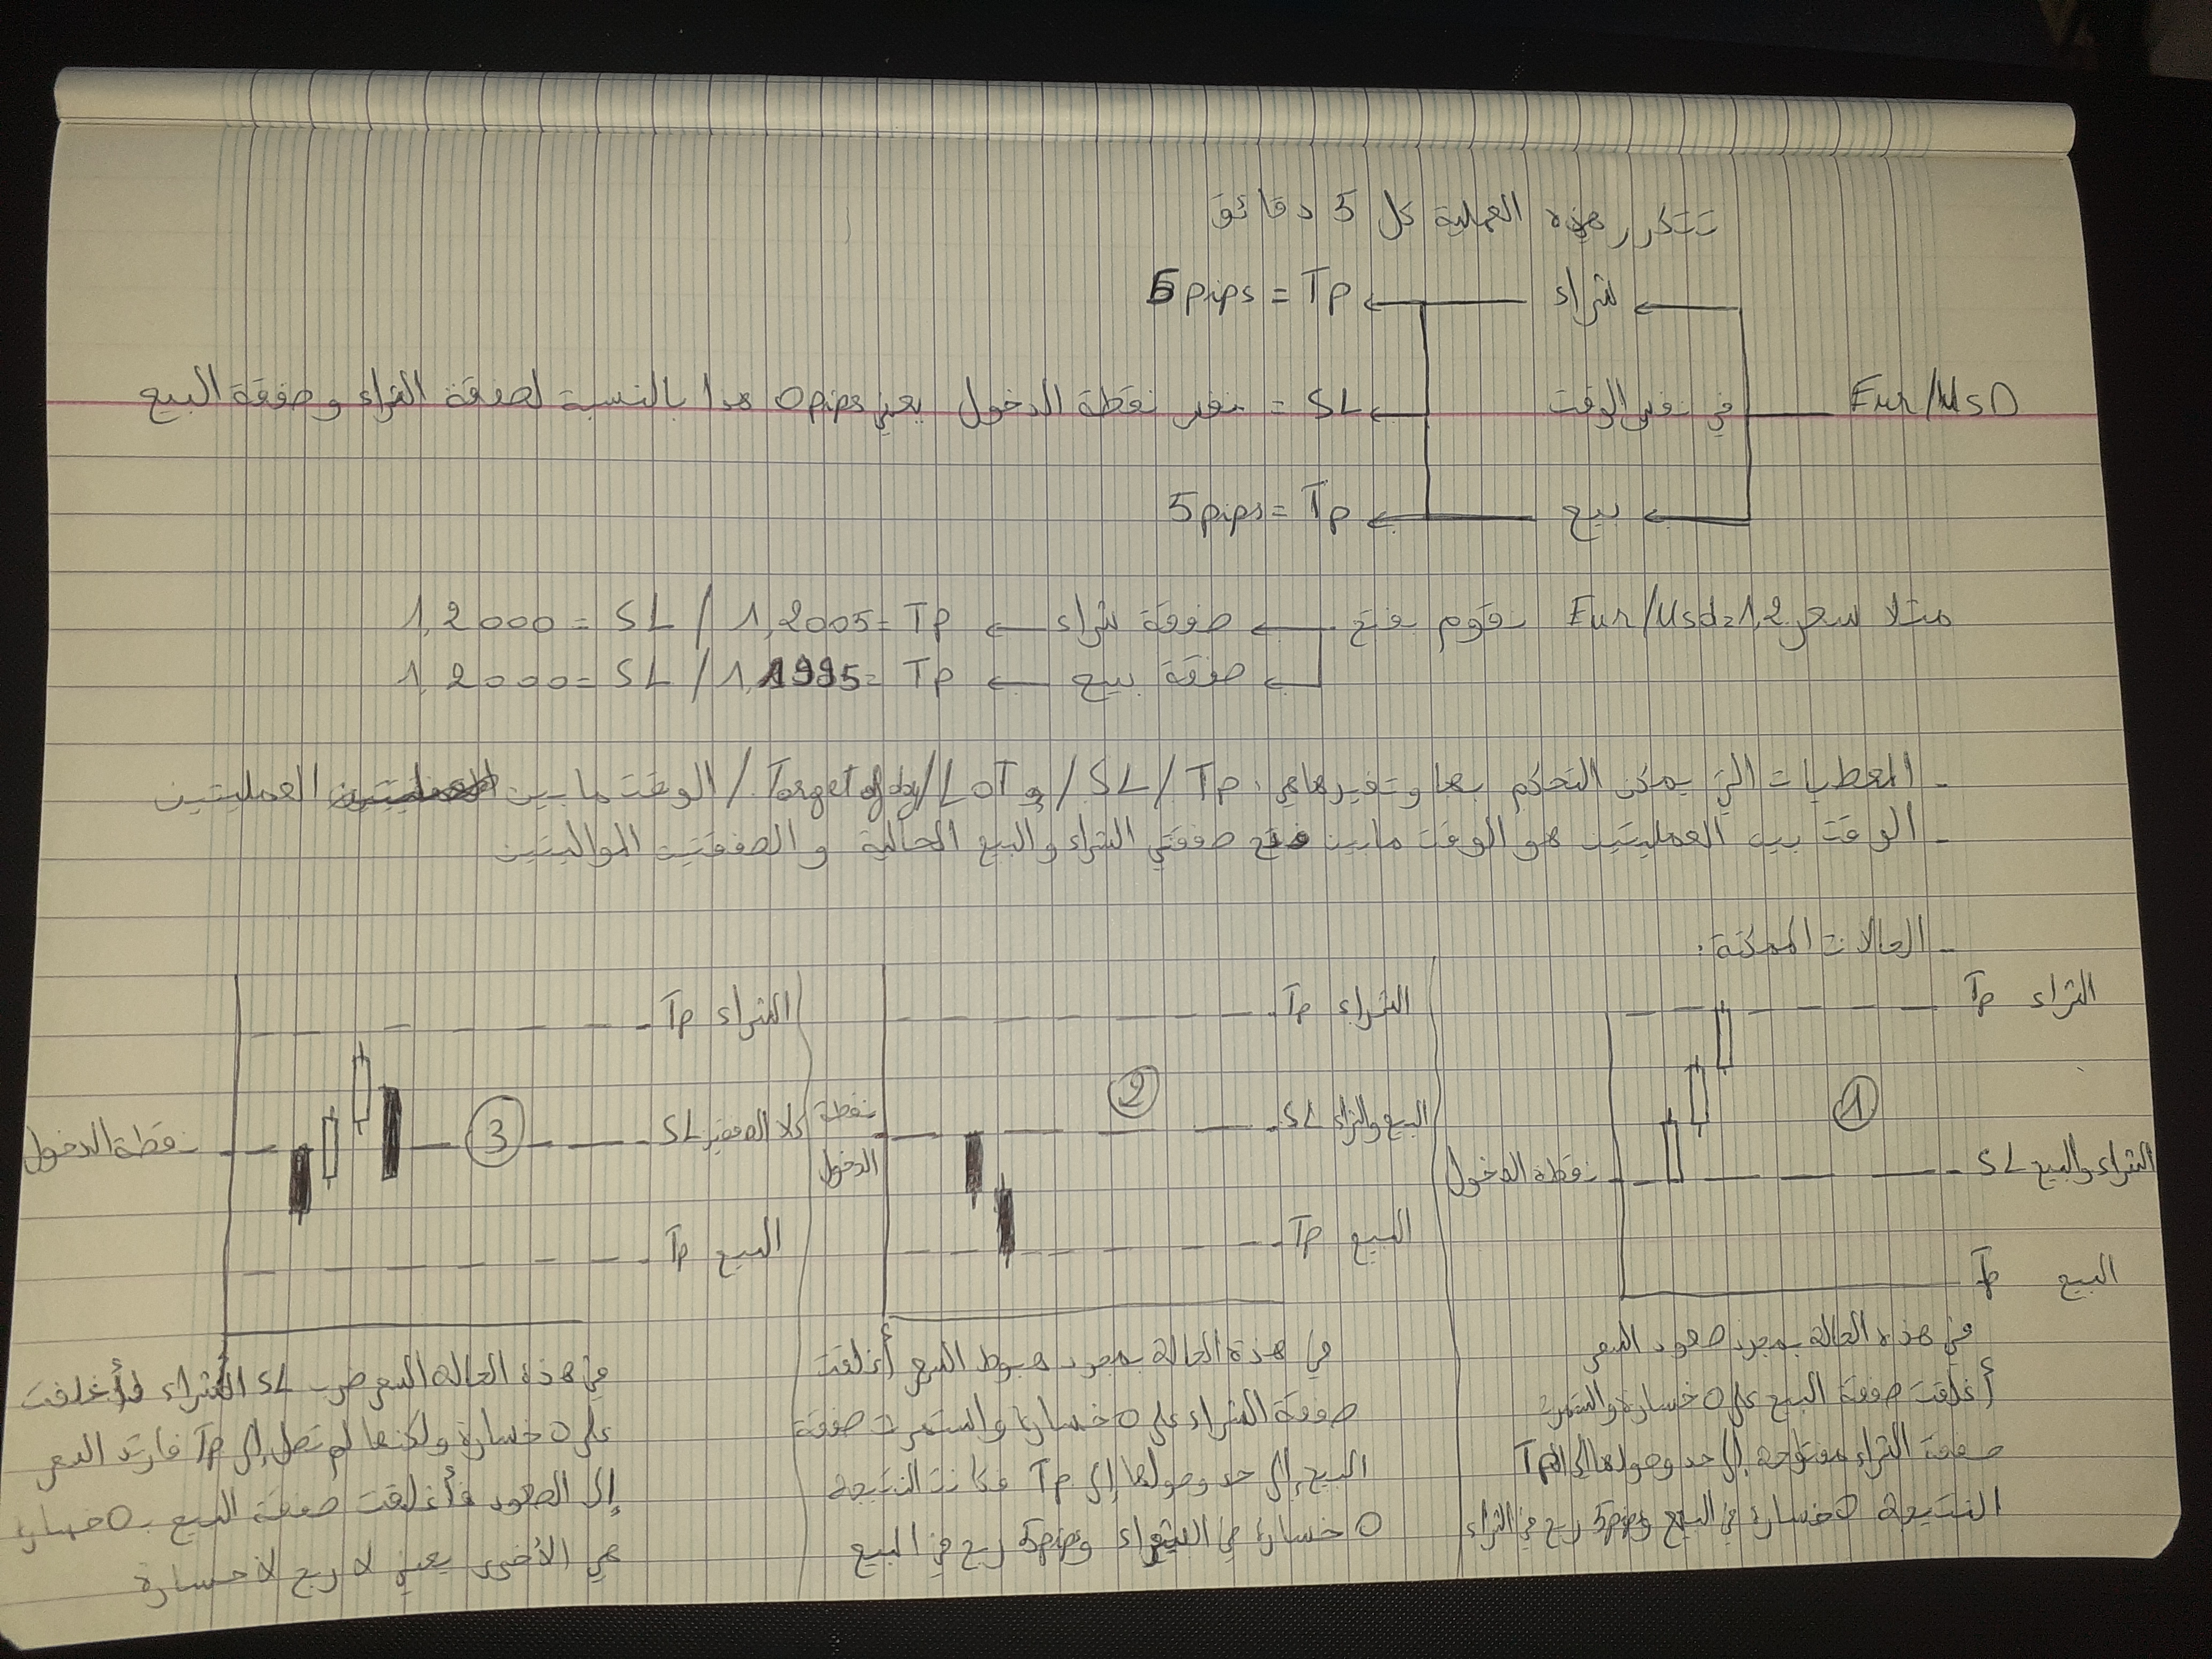 تتكرر هذه العملية كل 5 دقائق
شراء
5pips = Tp
Eur/UsD
في نفس الوقت
SL = نفس نقطة الدخول يعني 0pips هدا بالنسبة لصفقة الشراء وصفقة البيع
بيع
5pips = Tp
متلا سعر Eur/Usd=1,2 نقوم بفتح صفقة شراء 1,2000 = SL / 1,2005 = Tp
صفقة بيع 1,2000 = SL / 1,1995 = Tp
- المعطيات التي يمكن التحكم بها وتغيرها هي: Tp / SL / و LoT / Target of day / الوقت ما بين العمليتين
- الوقت بين العمليتين هو الوقت ما بين فتح صفقتي الشراء والبيع الحالية و الصفقتين المواليتين
- الحالات الممكنة:
الشراء Tp
①
الشراء والبيع SL
نقطة الدخول
البيع Tp
في هذه الحالة بمجرد صعود السعر
أغلقت صفقة البيع على 0 خسارة واستمرت
صفقة الشراء مفتوحة إلى حد وصولها إلى Tp
النتيجة 0 خسارة في البيع و 5pips ربح في الشراء
الشراء Tp
②
البيع والشراء SL
نقطة
الدخول
البيع Tp
في هذة الحالة بمجرد هبوط السعر أغلقت
صفقة الشراء على 0 خسارة واستمرت صفقة
البيع إلى حد وصولها إلى Tp فكانت النتيجة
0 خسارة في الشراء و 5pips ربح في البيع
الشراء Tp
③
كلا الصفقتين SL
نقطة الدخول
البيع Tp
في هذة الحالة السعر ضرب SL الشراء فأغلقت
على 0 خسارة ولكنها لم تصل إلى Tp فارتد السعر
إلى الصعود فأغلقت صفقة البيع ب 0 خسارة
هي الأخرى يعني لا ربح لا خسارة